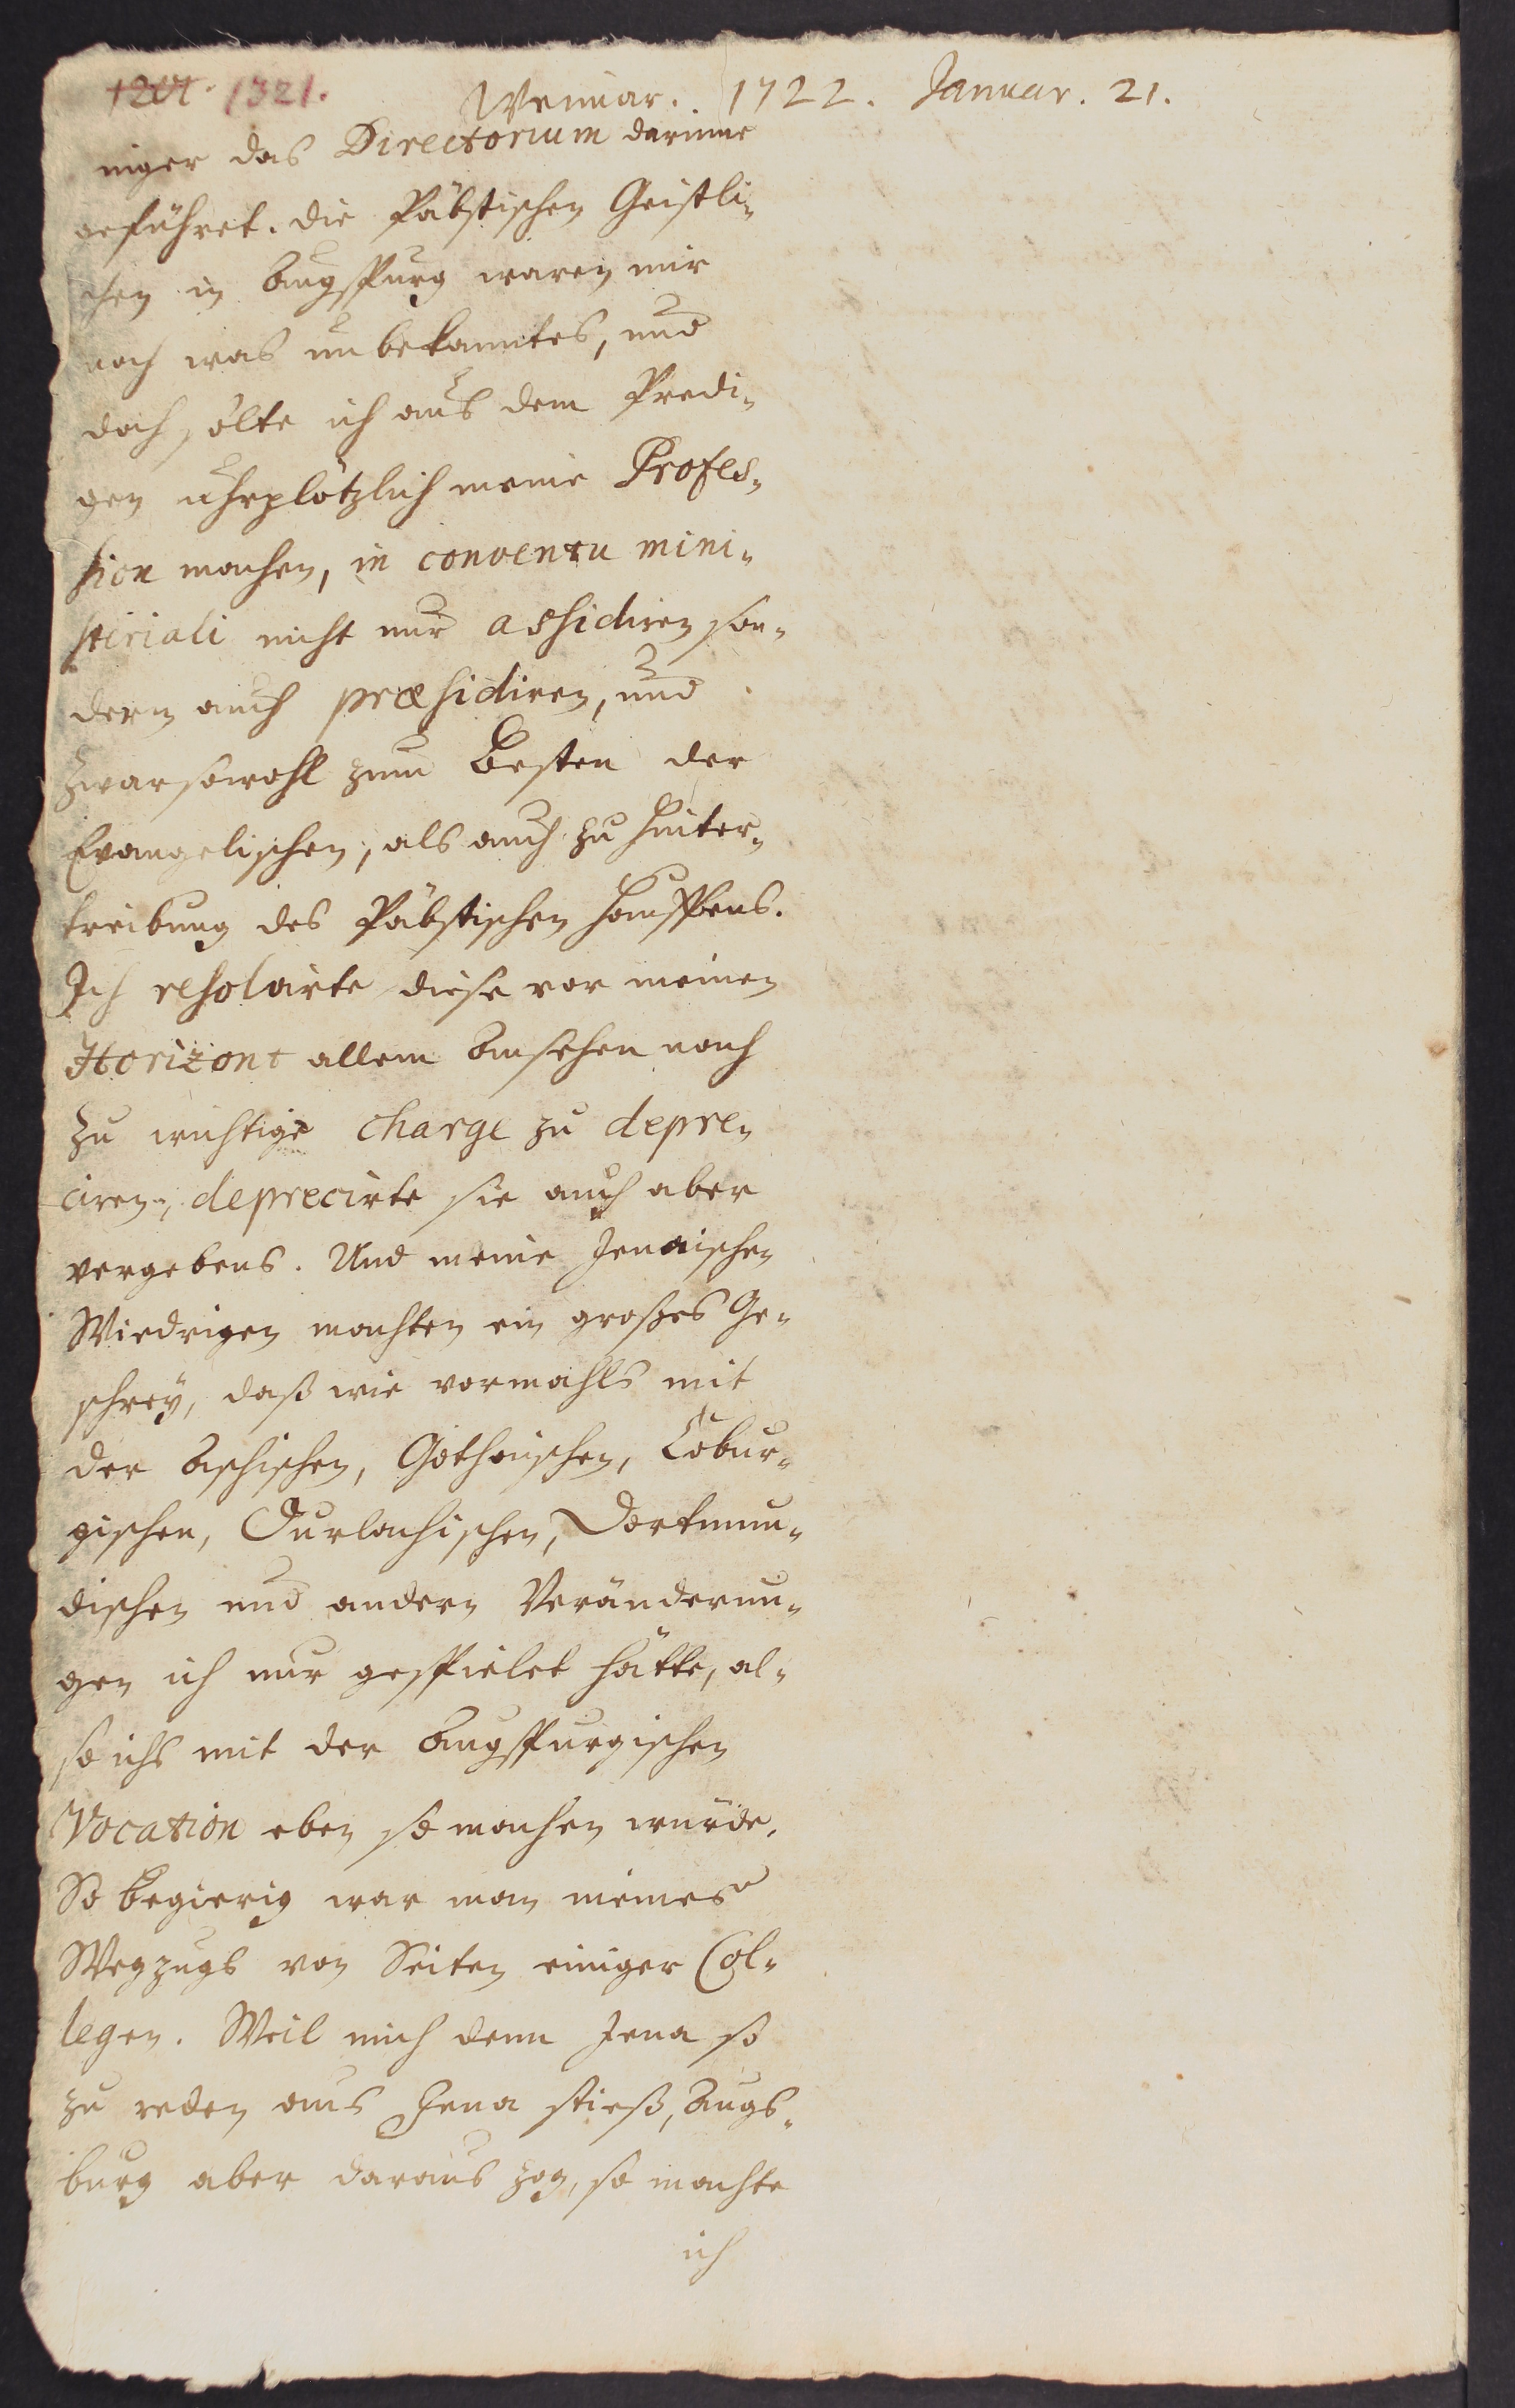 1321.
Weimar. 1722. Januar. 21.
niger das Directorium darinne
geführet. Die Päbstischen Geistli-
chen in Augspurg waren mir
noch was unbekanntes, und
doch solte ich aus dem Predi-
gen uhrplötzlich meine Profes-
sion machen, in conventu mini-
steriali nicht nur assidiren son-
dern auch præsidiren, und
zwar sowohl zum Besten der
Evangelischen, als auch zu hinter-
treibung des Päbstischen Hauffens.
Ich resolvirte diese vor meinen
Horizont allem Ansehen nach
zu wichtige charge zu depre-
ciren, deprecirte sie auch aber
vergebens. Und meine Jenaischen
Wiedrigen machten ein großes Ge-
schrey, daß wie vormahls mit
der Aschischen, Gothaischen, Cobur-
gischen, Durlachischen, Dortmun-
dischen und andern Veränderun-
gen ich nur gespielet hätte, al-
so ichs mit der Augspurgischen
Vocation eben so machen würde.
So begierig war man meines
Wegzugs von Seiten einiger Col-
legen. Weil mich denn Jena so
zu reden aus Jena stieß, Augs-
burg aber daraus zog, so machte
ich